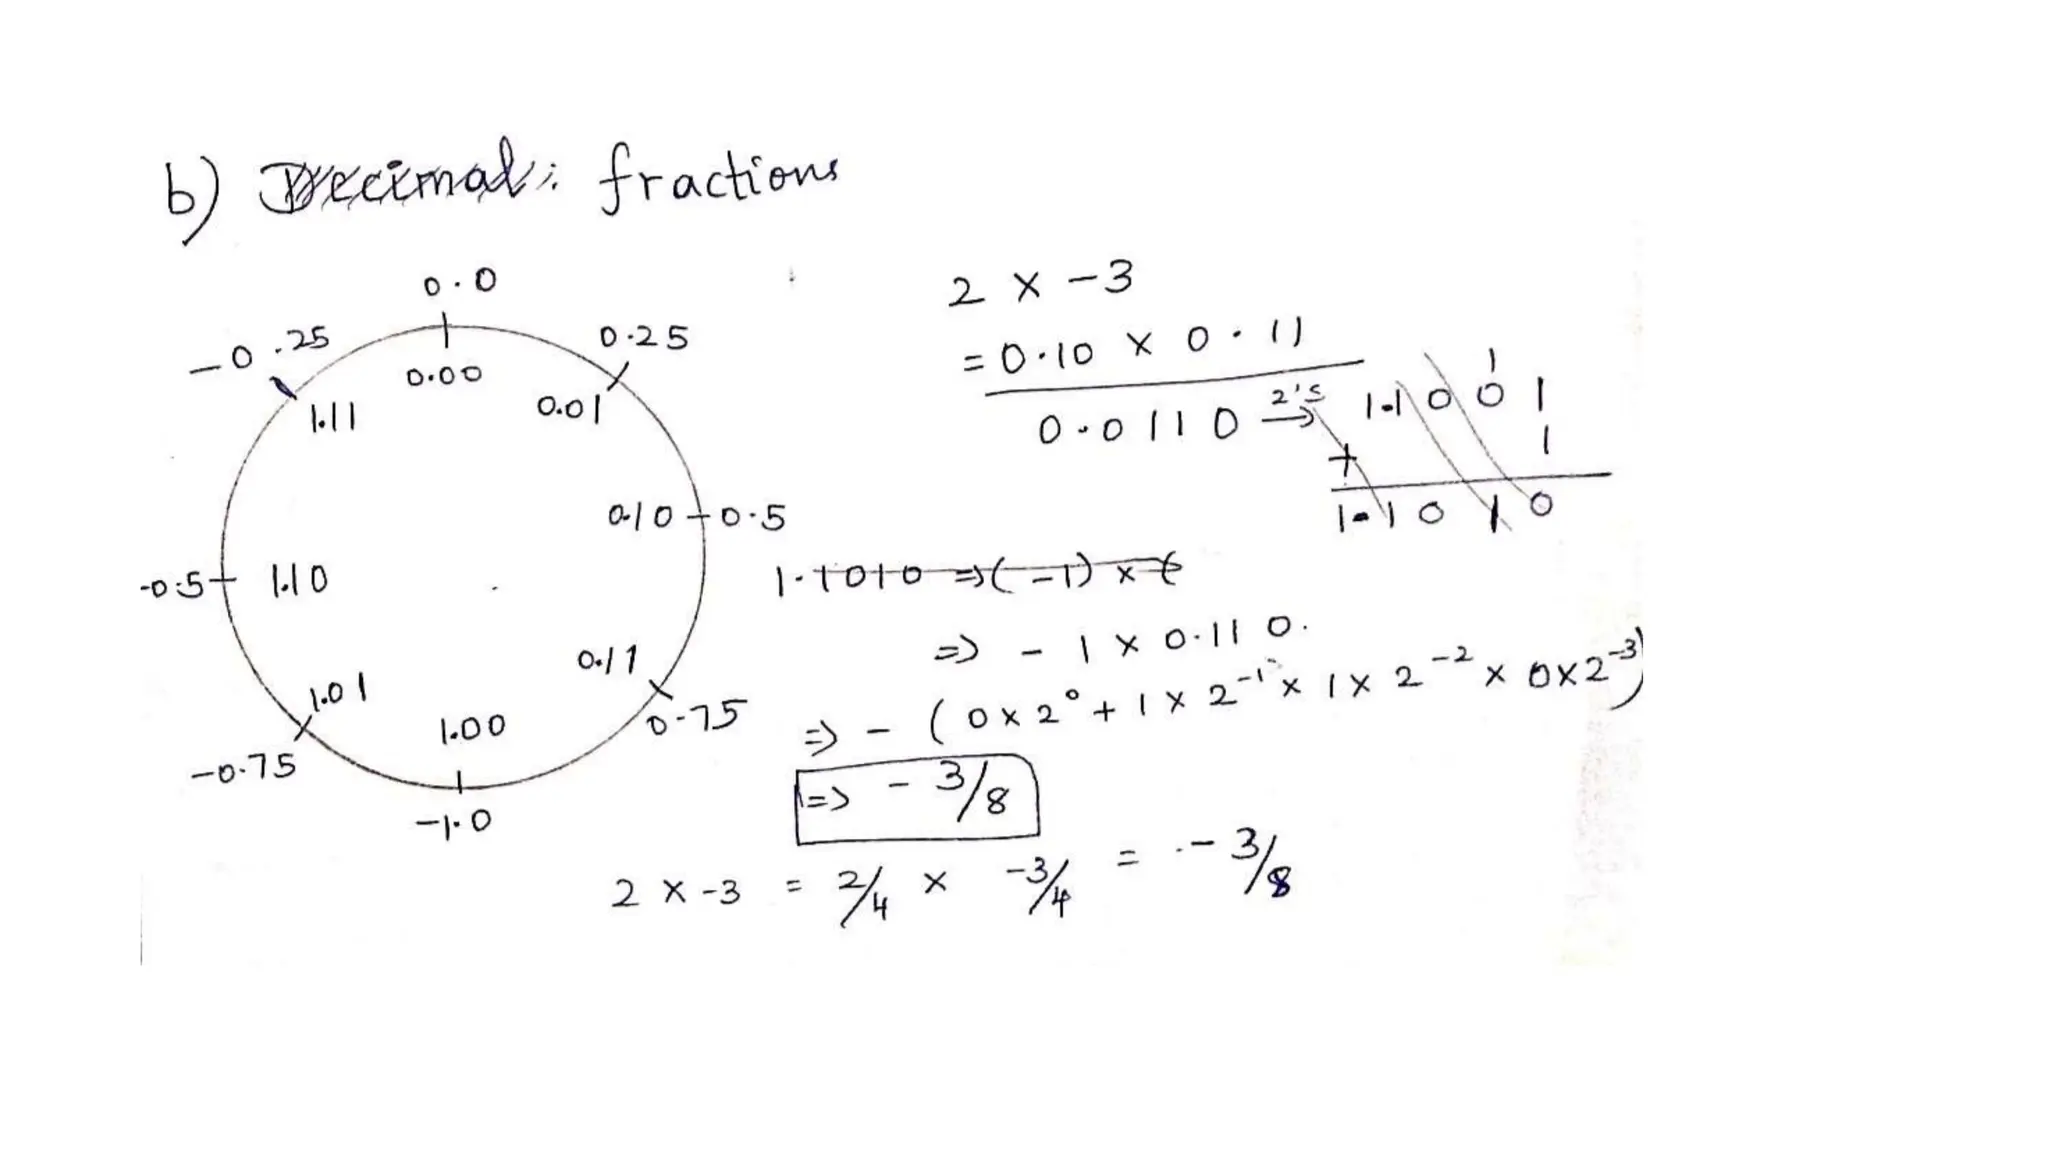 b) Decimal: fractions
0.0
-0.25
0.25
0.00
1.11
0.01
0.10
0.5
-0.5
1.10
0.11
1.01
1.00
0.75
-0.75
-1.0
2 × -3
= 0.10 × 0.11
0.0110 2's → 1.1001
1
+ 1
1.1010
1.1010 ⇒ (-1) × (
⇒ - 1 × 0.110.
⇒ - (0×2⁰ + 1×2⁻¹ × 1×2⁻² × 0×2⁻³)
⇒ - 3/8
2 × -3 = 2/4 × -3/4 = - 3/8